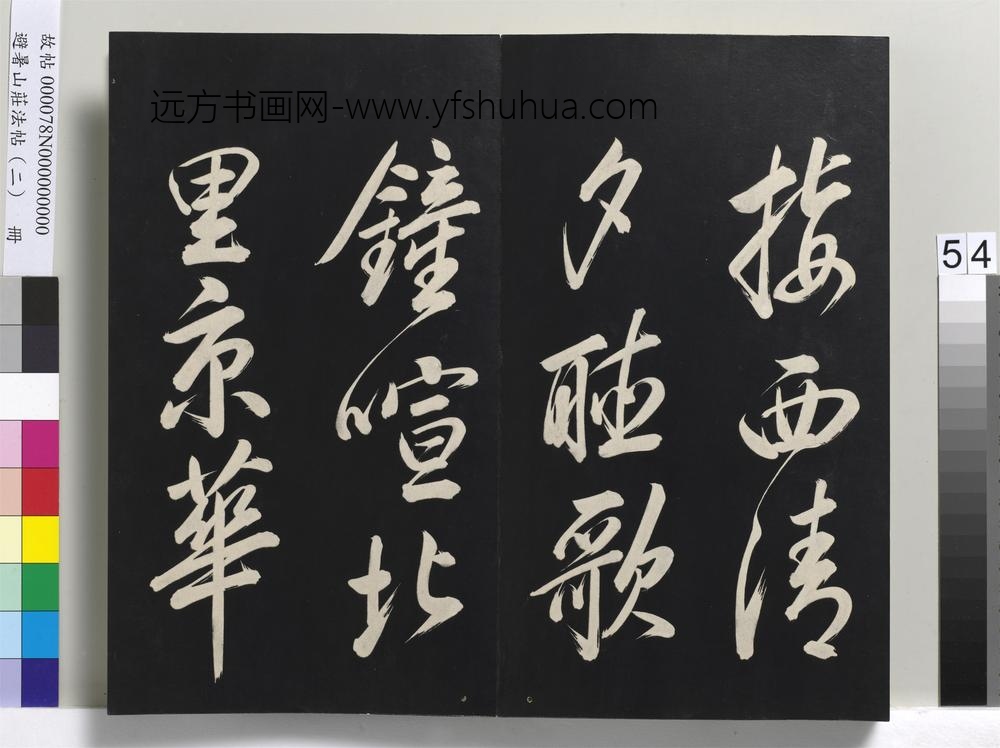 接西清
夕聽歌
鐘喧北
里京華
远方书画网-www.yfshuhua.com
故帖 000078N000000000
避暑山莊法帖（二） 冊
54